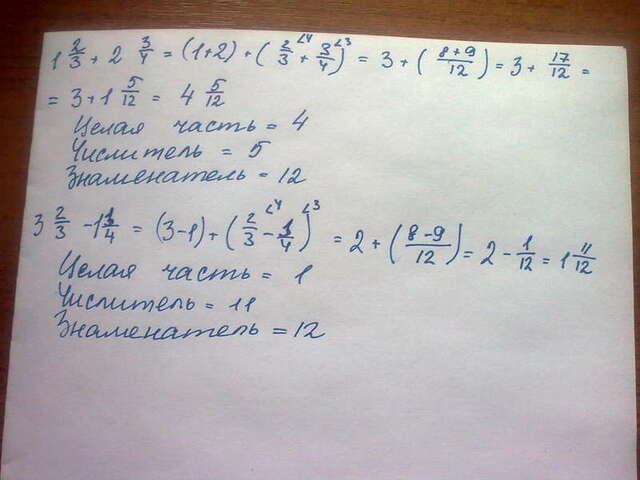 1 2/3 + 2 3/4 = (1+2) + (2/3 ∠4 + 3/4 ∠3) = 3 + (8+9/12) = 3 + 17/12 =
= 3 + 1 5/12 = 4 5/12
Целая часть = 4
Числитель = 5
Знаменатель = 12
3 2/3 - 1 3/4 = (3-1) + (2/3 ∠4 - 3/4 ∠3) = 2 + (8-9/12) = 2 - 1/12 = 1 11/12
Целая часть = 1
Числитель = 11
Знаменатель = 12